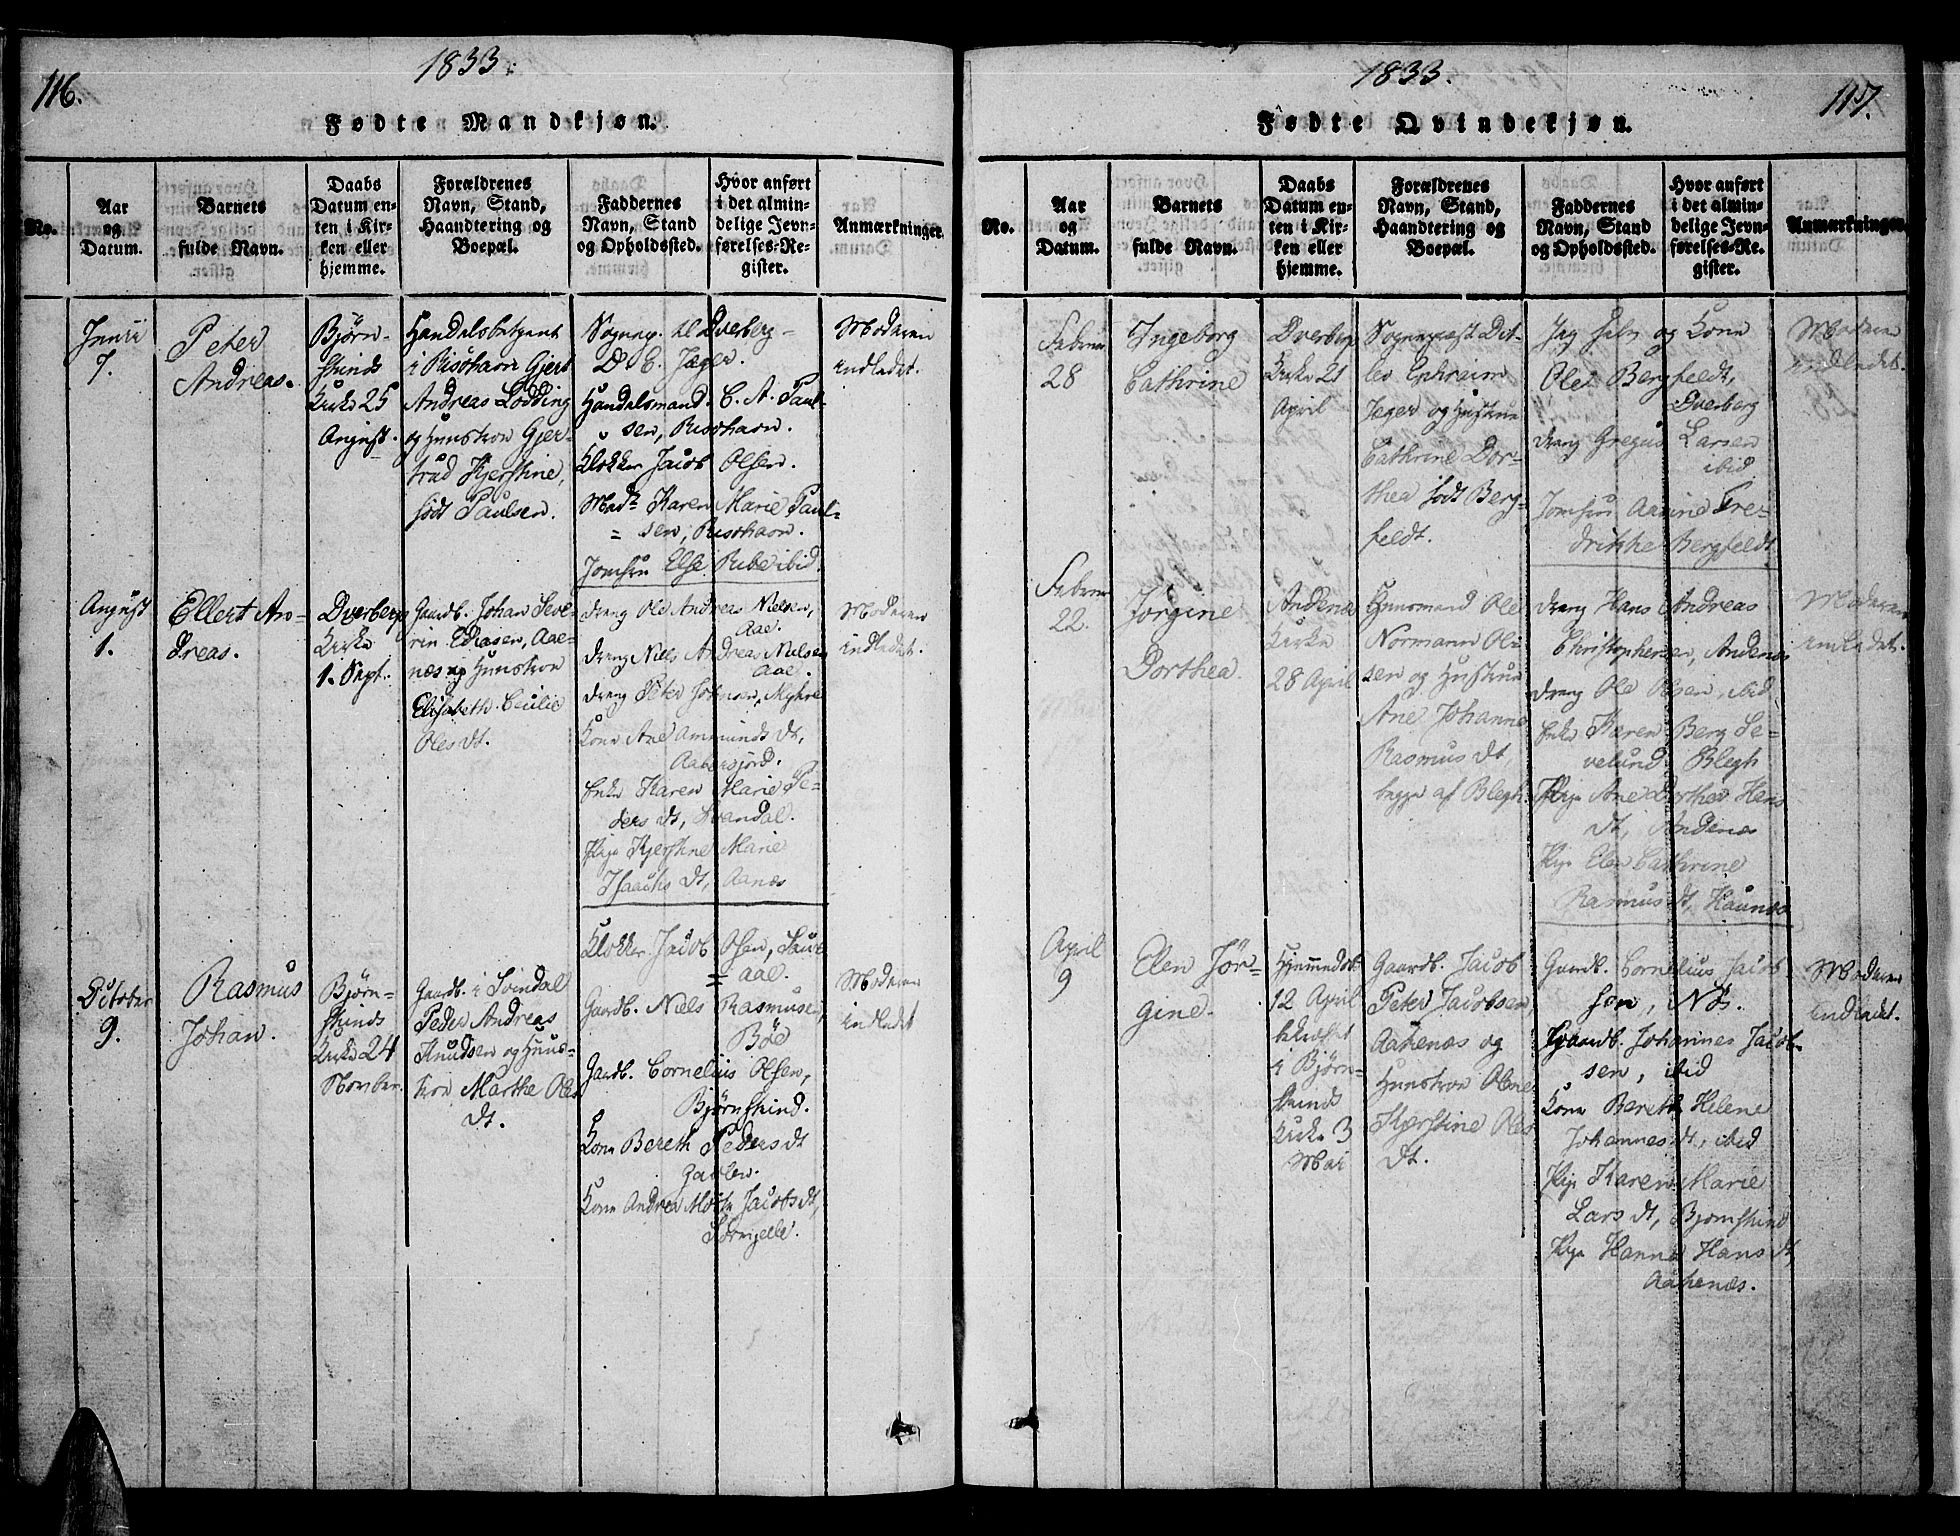 116.
1833.
Fødte Mandkjøn.
No.
Aar
og
Datum.
Barnets
fulde Navn.
Daabs
Datum en-
ten i Kir-
ken eller
hjemme.
Forældrenes
Navn, Stand,
Haandtering og
Boepæl.
Faddernes
Navn, Stand
og Opholdssted.
Hvor anført
i det almin-
delige Jevn-
førelses-Re-
gister.
Anmærkninger.
Junii
7.
Peter
Andreas.
Bjørn-
skinds
Kirke 25
August.
Handelsbetjent
i Risøhavn Gjert
Andreas Lodding
og Hunstron Gjer-
trud Kjerstine,
født Paulsen.
Sognep. til Dverberg
D. E. Jæger.
Handelsmand C. A. Paul-
sen, Risøhavn.
Klokker Jacob Olsen.
Madm Karen Marie Paul-
sen, Risøhavn.
Jomfru Else Rube ibid.
Moderen
indledet.
August
1.
Ellert An-
dreas.
Dverberg
Kirke
1. Sept.
Gaardb. Johan Seve-
rin Eliasen, Aae-
næs og Hunstron
Elisabeth Cecilie
Oles dt.
dreng Ole Andreas Nielsen,
Aae.
dreng Niels Andreas Nielsen
Aae.
dreng Peter Johnsen,
Kone Ane Ammunds dt,
Enke Karen Marie Pe-
ders dt,
Pige Kjerstine Marie
Isachs dt, Aanæs
Moderen
indledet.
October
9.
Rasmus
Johan.
Bjørn-
skinds
Kirke 24
Novmber.
Gaardb. i Svindal
Peder Andreas
Knudsen og Huus-
tron Marthe Oles
dt.
Klokker Jacob Olsen,
aae.
Gaardb. Niels Rasmusen,
Böe
Gaardb. Cornelius Olsen,
Bjørnskind.
Kone Bereth Peders dt
Kone Andrea Jacobs dt,
Moderen
indledet
1833.
117.
Fødte Qvindekjøn.
No.
Aar
og
Datum.
Barnets
fulde Navn.
Daabs
Datum en-
ten i Kir-
ken eller
hjemme.
Forældrenes
Navn, Stand,
Haandtering og
Boepæl.
Faddernes
Navn, Stand
og Opholdssted.
Hvor anført
i det almin-
delige Jevn-
førelses-Re-
gister.
Anmærkninger.
Februar
28
Ingeborg
Cathrine
Dverberg
Kirke 21
April
Sognepræst Dit-
lev Ephraim
Jeger og Hustrue
Cathrine Dor-
thea født Berg-
feldt.
Jeg selv og Kone
Ole Bergfeldt,
Dverberg
dreng Gregus Larsen
ibid
Jomfru Aanine Fre-
drikke Bergfeldt
Moderen
indledet.
Februar
22.
Jørgine
Dorthea.
Andenæs
Kirke
28 April
Huusmand Ole
Normann Ol-
sen og Hustrue
Ane Johanne
Rasmus dt,
begge af Blegh.
dreng Hans Andreas
Christophersen, Andenæs
dreng Ole Olsen, ibid
Enke Karen Berg Se-
velund Blegh
Pige Ane Dorthea Hans
dt, Andenæs
Pige Elen Cathrine
Rasmus dt, Haunæs
Moderen
indledet.
April
9
Elen Jør-
gine.
Hjemmedøbt
12 April
bekræftet
i Bjørn-
skinds
Kirke 3
Mai
Gaardb. Jacob
Peter Jacobsen,
Aakenæs og
Hunstron Olene
Kjerstine Oles
dt.
Gaardb. Cornelius Jacob
sen, Nös.
Gaardb. Johannes Jacob-
sen, ibid
Kone Bereth Helene
Johannes dt, ibid
Pige Karen Marie
Lars dt, Bjørnskind
Pige Hanna Hans dt,
Aakenæs.
Moderen
indledet.